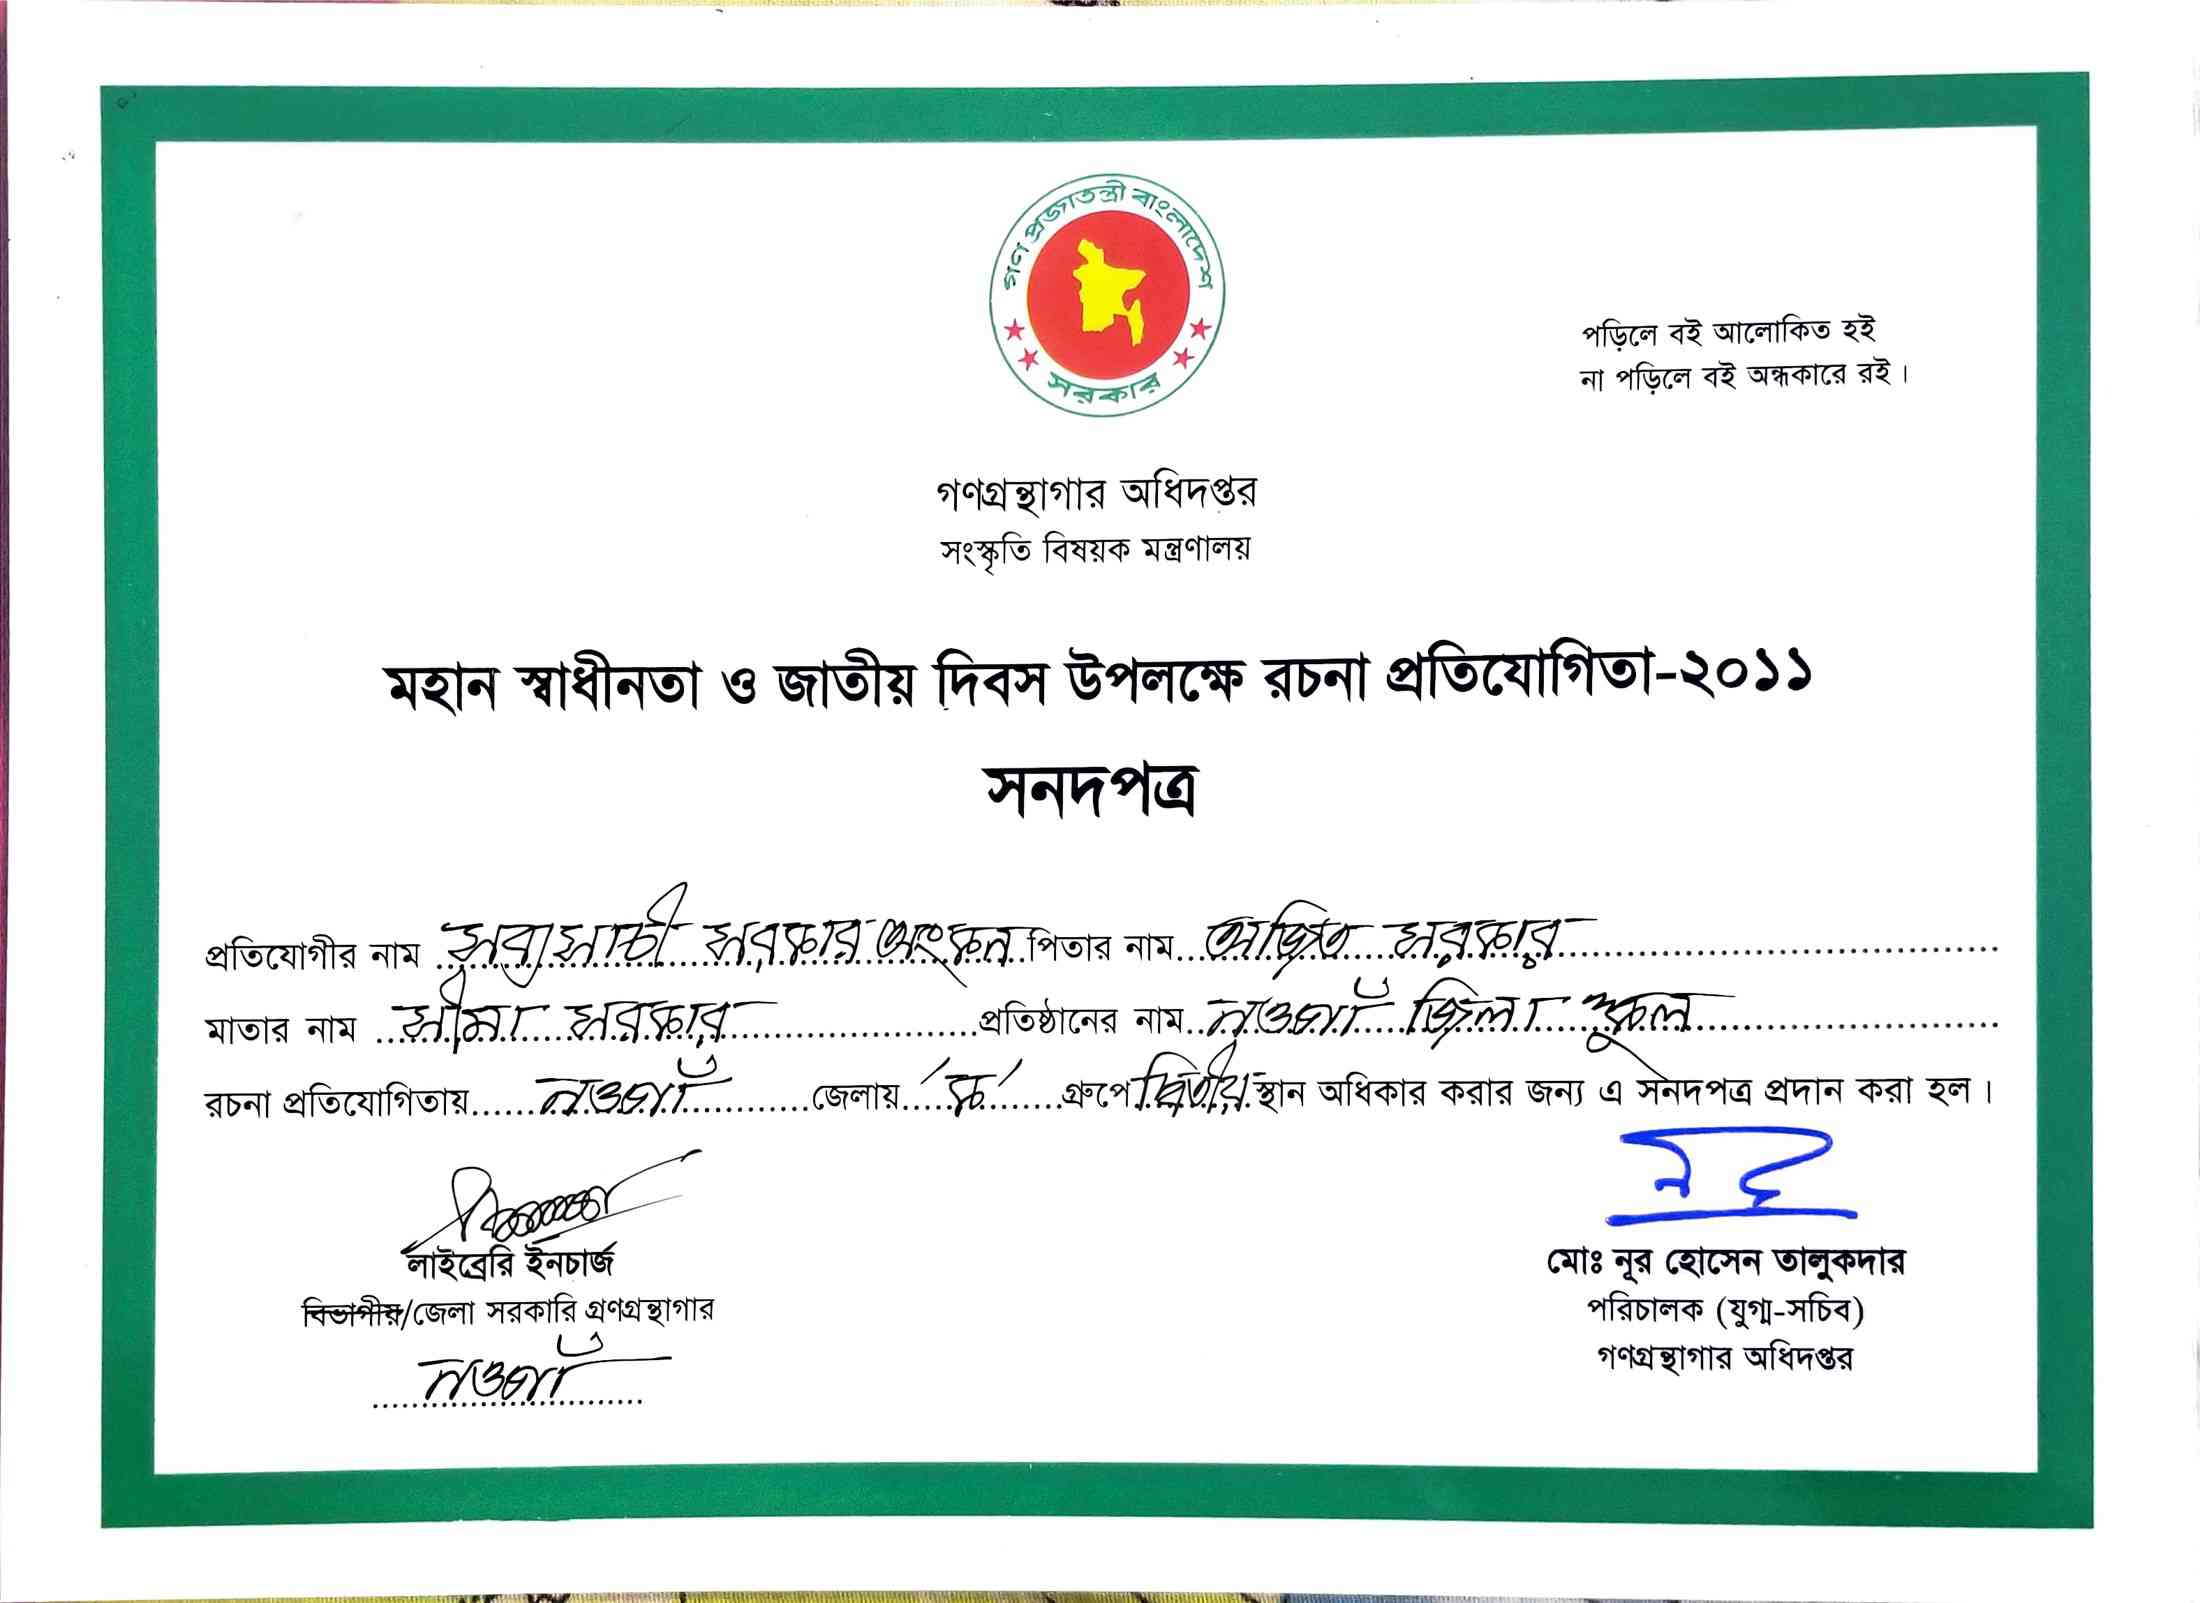 গণ প্রজাতন্ত্রী বাংলাদেশ
সরকার
পড়িলে বই আলোকিত হই
না পড়িলে বই অন্ধকারে রই।
গণগ্রন্থাগার অধিদপ্তর
সংস্কৃতি বিষয়ক মন্ত্রণালয়
মহান স্বাধীনতা ও জাতীয় দিবস উপলক্ষে রচনা প্রতিযোগিতা-২০১১
সনদপত্র
প্রতিযোগীর নাম সব্যসাচী সরকার অংকন পিতার নাম অজিত সরকার
মাতার নাম সীমা সরকার প্রতিষ্ঠানের নাম নওগাঁ জিলা স্কুল
রচনা প্রতিযোগিতায় নওগাঁ জেলায় ‘ক’ গ্রুপে দ্বিতীয় স্থান অধিকার করার জন্য এ সনদপত্র প্রদান করা হল।
লাইব্রেরি ইনচার্জ
বিভাগীয়/জেলা সরকারি গ্রণগ্রন্থাগার
নওগাঁ
মোঃ নূর হোসেন তালুকদার
পরিচালক (যুগ্ম-সচিব)
গণগ্রন্থাগার অধিদপ্তর